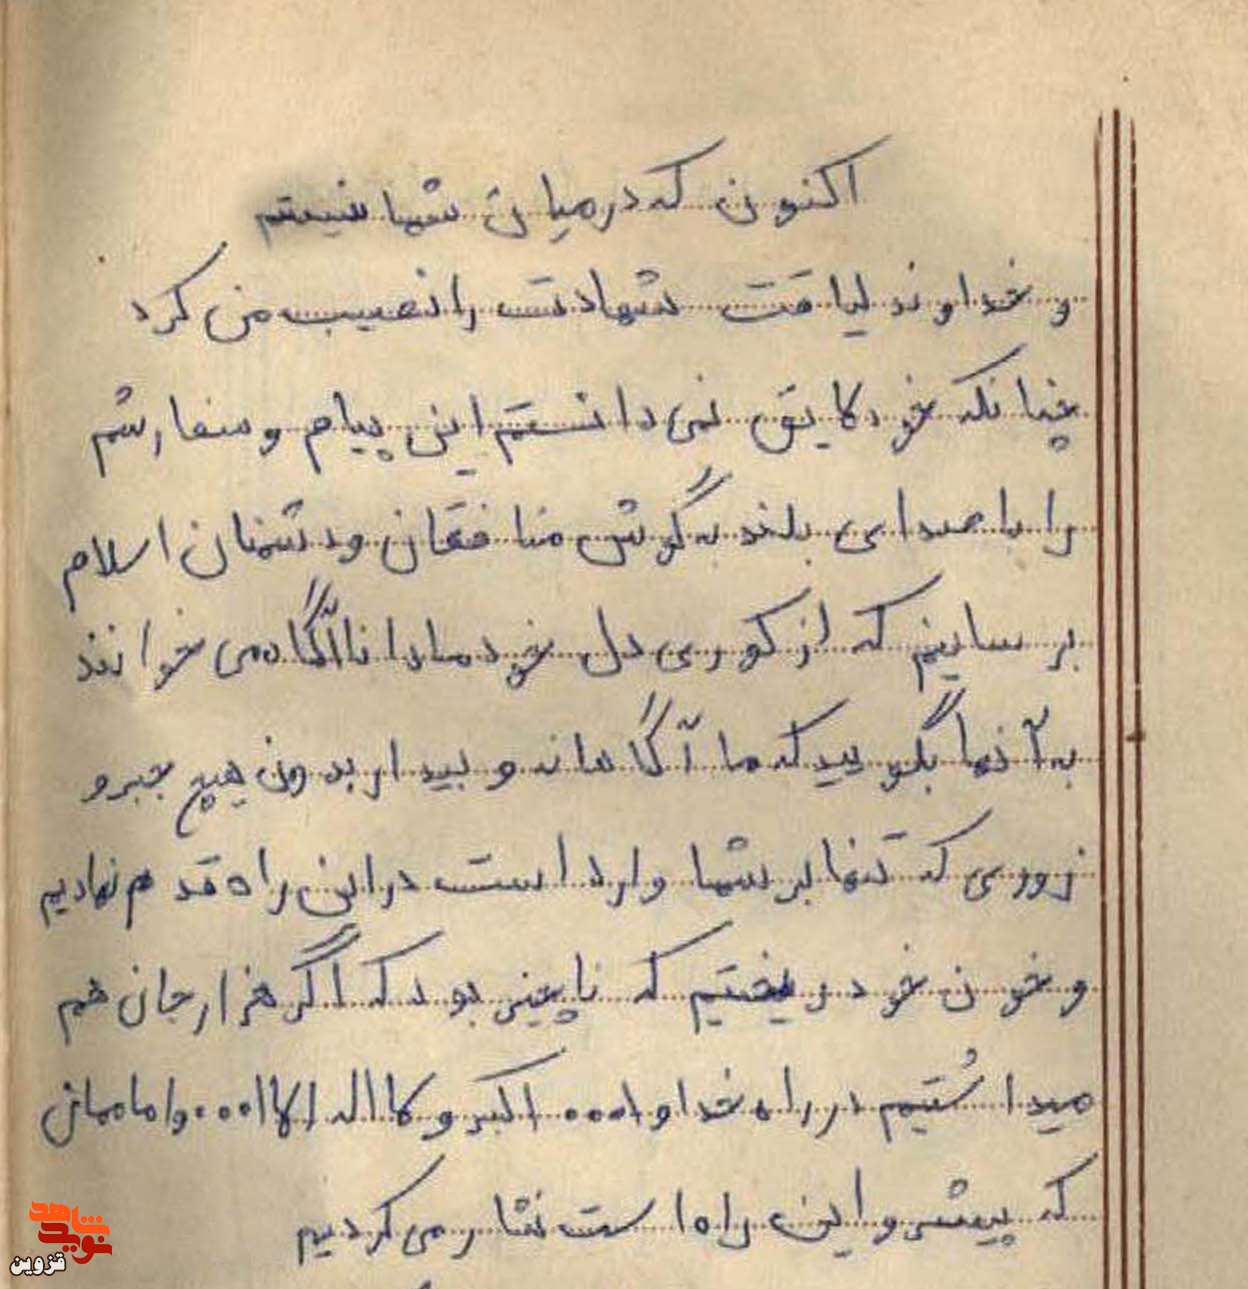 اکنون که در میان شما نیستم
و خداوند لیاقت شهادت را نصیب من کرد
چنانکه خود لایق نمی دانستم این پیام و سفارشم
را با صدای بلند به گوش منافقان و دشمنان اسلام
برسانیم که از کوری دل خود ما را ناآگاه می خوانند
به آنها بگویید که ما آگاهانه و بیدار بدون هیچ جبر و
زوری که تنها بر شما وارد است در این راه قدم نهادیم
و خون خود ریختیم که ناچیز بود که اگر هزار جان هم
میداشتیم در راه خدا و ا... اکبر و لا اله الا ا... و امامان
که پیشرو این راه است نثار می کردیم
نوید شاهد
قزوین